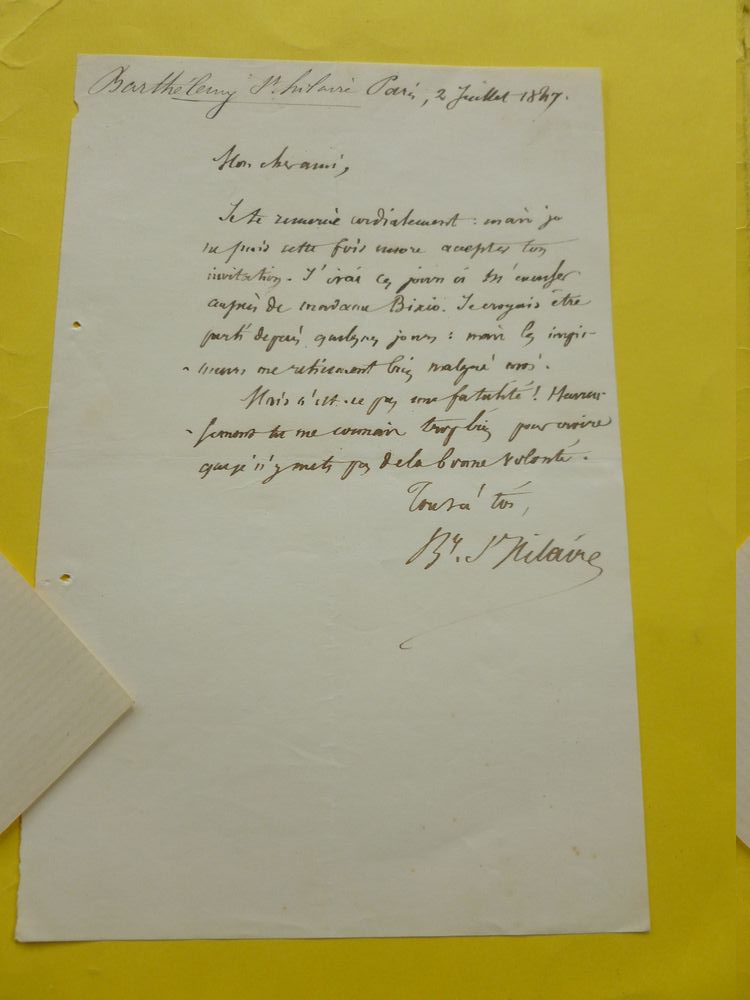 Barthélemy St hilaire Paris, 2 Juillet 1847.
Mon cher ami,
Je te remercie cordialement : mais je
ne puis cette fois encore accepter ton
invitation. J'irai ces jours ci m'excuser
auprès de madame Bixio. Je croyais être
parti depuis quelques jours : mais les impri-
- meurs me retiennent bien malgré moi.
Mais n'est-ce pas une fatalité ! Heureu-
- sement tu me connais trop bien pour croire
que je n'y mets pas de la bonne volonté.
Tout à toi,
By. St Hilaire